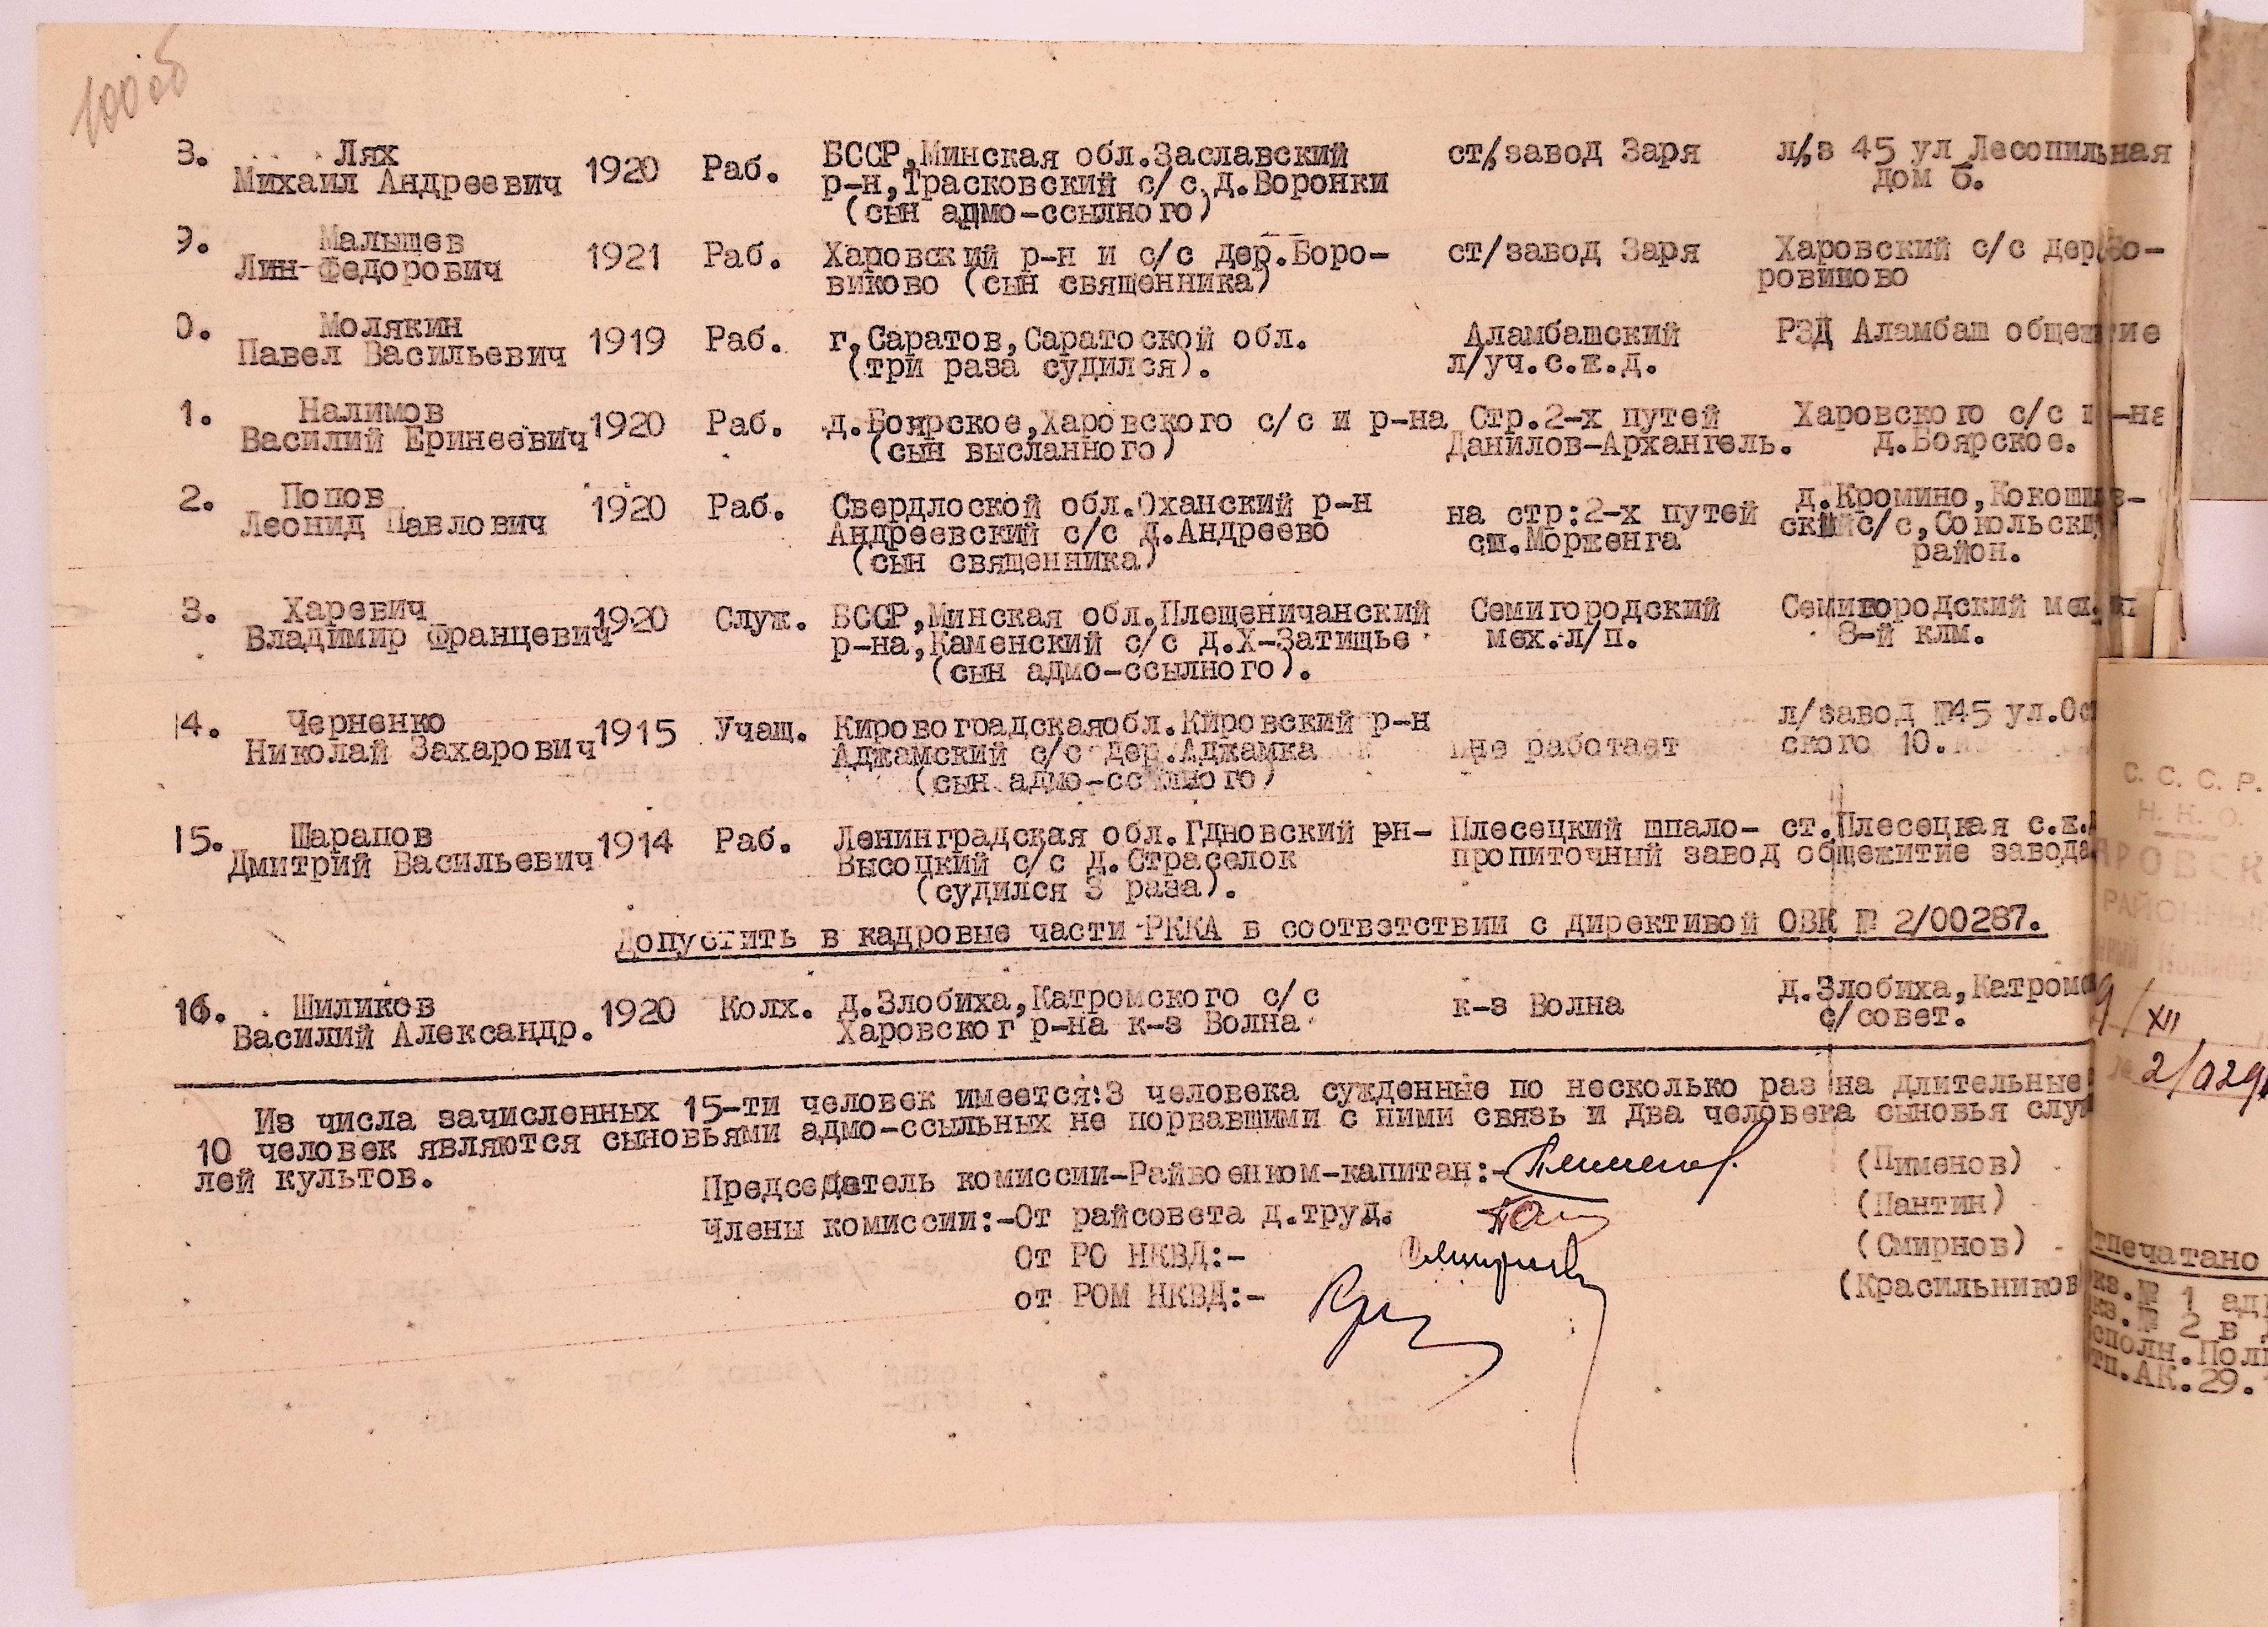 100 об
8. Лях
Михаил Андреевич 1920 Раб. БССР,Минская обл.Заславский ст/завод Заря л/з 45 ул Лесопильная
р-н,Трасковский с/с,д.Воронки дом 6.
(сын адмо-ссылного)
9. Малышев
Лин-Федорович 1921 Раб. Харовский р-н и с/с дер.Боро- ст/завод Заря Харовский с/с дер.Бо-
виково (сын священника) ровиково
0. Молякин
Павел Васильевич 1919 Раб. г.Саратов,Саратоской обл. Аламбашский РЗД Аламбаш общежтие
(три раза судился). л/уч.с.ж.д.
1. Налимов
Василий Еринеевич 1920 Раб. д.Боярское,Харовского с/с и р-на Стр.2-х путей Харовского с/с -на
(сын высланного) Данилов-Архангель. д.Боярское.
2. Попов
Леонид Павлович 1920 Раб. Свердлоской обл.Оханский р-н на стр:2-х путей д.Кромино,Кокошив-
Андреевский с/с д.Андреево ст.Морженга ский с/с,Сокольский
(сын священника) район.
3. Харевич
Владимир Францевич 1920 Служ. БССР,Минская обл.Плещеничанский Семигородский Семигородский мех.
р-на,Каменский с/с д.Х-Затищье мех.л/п. 3-й клм.
(сын адмо-ссылного).
14. Черненко
Николай Захарович 1915 Учащ. Кировоградскаяобл.Кировский р-н не работает л/завод №45 ул.Ос
Аджамский с/с дер.Аджамка ского 10.
(сын адмо-ссылного)
15. Шарапов
Дмитрий Васильевич 1914 Раб. Ленинградская обл.Гдновский рн- Плесецкий шпало- ст.Плесецкая с.ж.
Высоцкий с/с д.Страселок пропиточный завод общежитие завода
(судился 3 раза).
Допустить в кадровые части РККА в соответствии с директивой ОВК № 2/00287.
16. Шиликов
Василий Александр. 1920 Колх. д.Злобиха,Катромского с/с к-з Волна д.Злобиха,Катромс
Харовског р-на к-з Волна с/совет.
Из числа зачисленных 15-ти человек имеется:3 человека сужденные по несколько раз на длительные
10 человек являются сыновьями адмо-ссыльных не порвавшими с ними связь и два человека сыновья служ
лей культов.
Председатель комиссии-Райвоенком-капитан:- Пименов. (Пименов)
Члены комиссии:-От райсовета д.труд. (Пантин)
От РО НКВД:- Смирнов (Смирнов)
от РОМ НКВД:- (Красильников
С. С. С. Р.
Н. К. О.
РОВСК
РАЙОННЫЙ
9/XII
№ 2/029
тпечатано
кз.№ 1 ад
кз.№ 2 в
сполн.Пол
тп.АК.29.